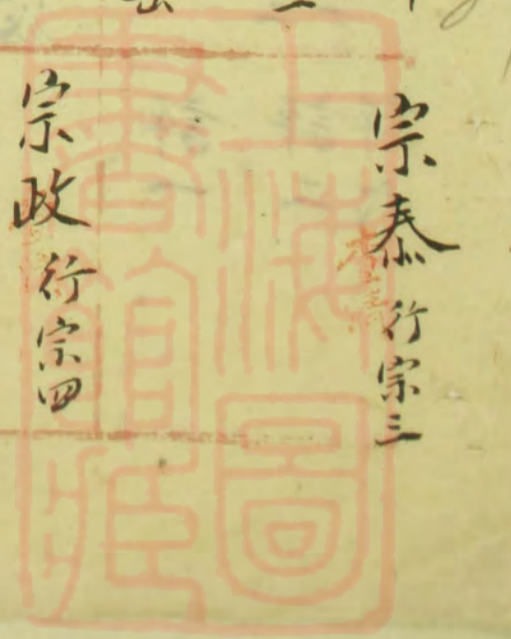 宗泰行宗三
宗政行宗四
上海圖
書館藏